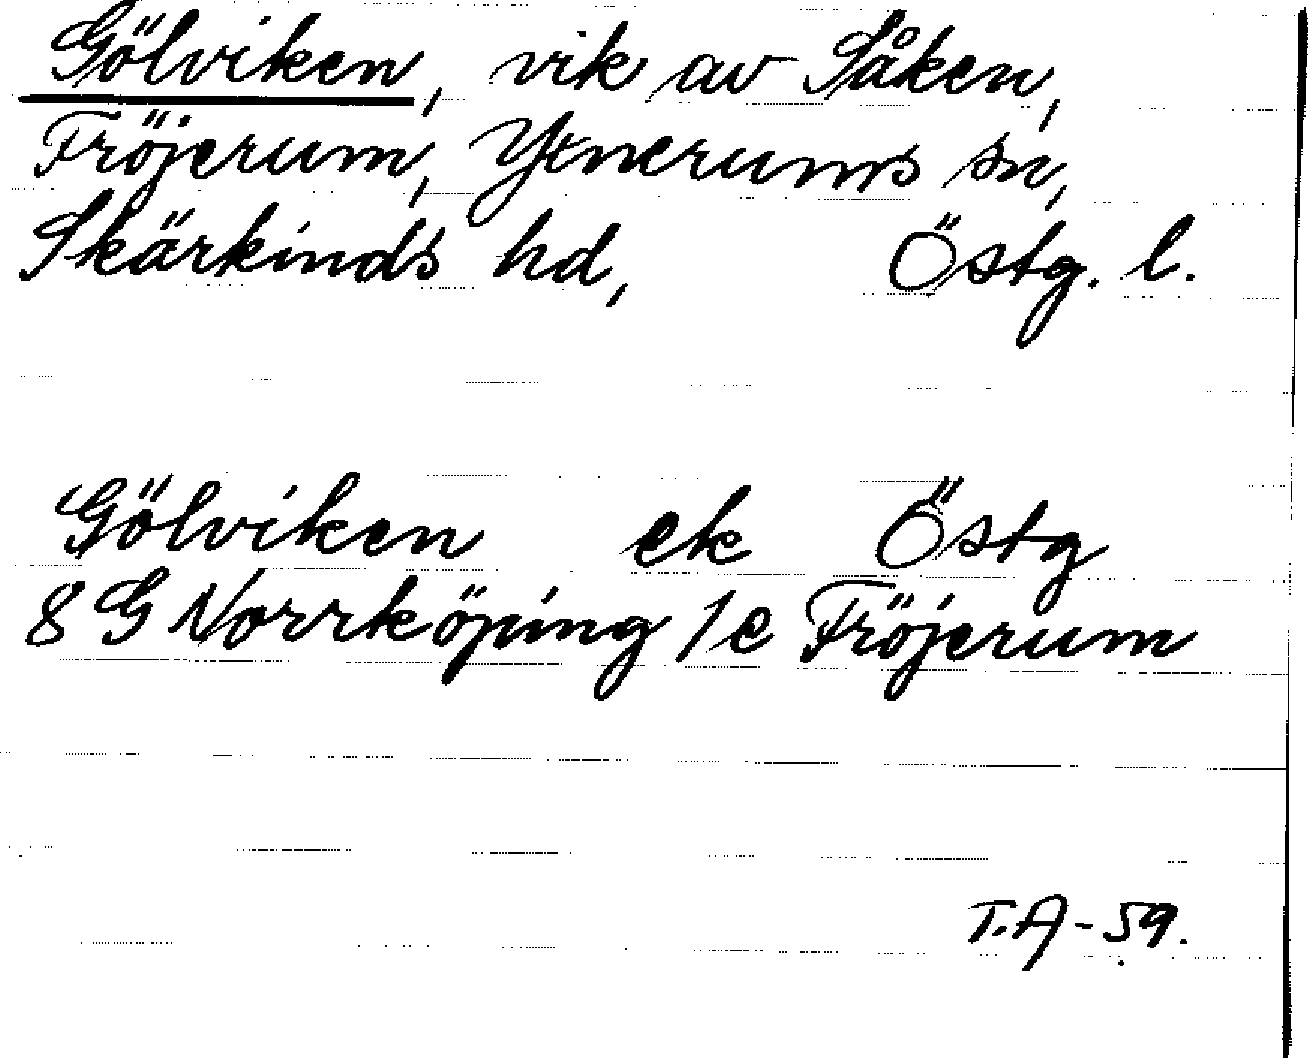 Gölviken, vik av Såken,
Fröjerum, Ytnerums sn,
Skärkinds hd, Östg. l.
Gölviken ek Östg
8 G Norrköping 1 e Fröjerum
T.A-59.